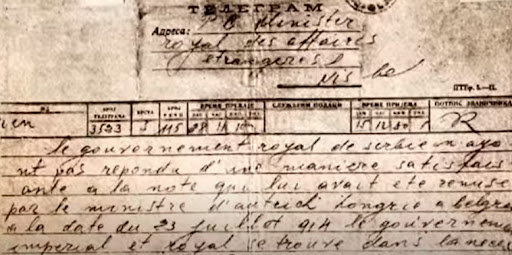 ТЕЛЕГРАМ
Адреса: P.C. Minister
royal des affaires
etrangeres
Nis
ПТБр. 5.—П.
БРОЈ ТЕЛЕГРАМА ВРСТА БРОЈ ВРЕМЕ ПРЕДАЈЕ СЛУЖБЕНИ ПОДАЦИ ВРЕМЕ ПРИЈЕМА ПОТПИС ЗВАНИЧНИКА
3523 115 28
le gouvernement royal de serbie n ayo
nt pas repondu d'une maniere satisfais
ante a la note qui lui avait ete remise
par le ministre d'autrich hongrie a belgra
a la date du 23 juillet 914 le gouverneme
imperial et royal se trouve dans la neces